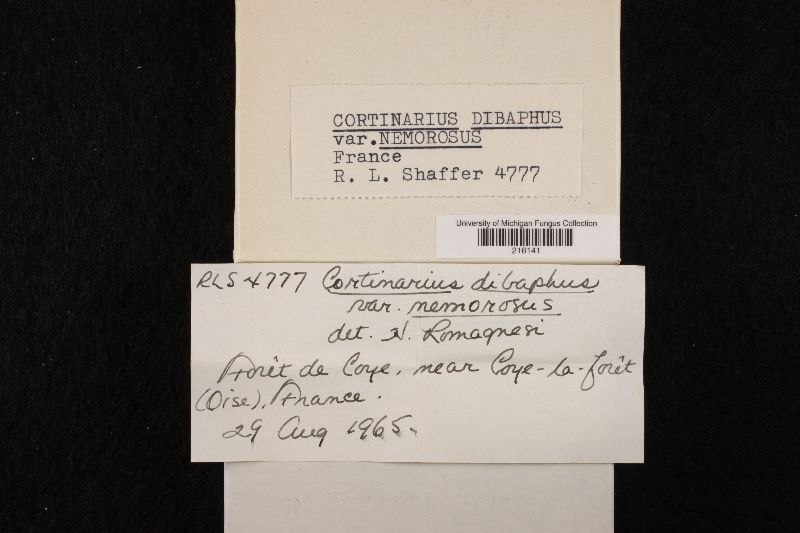 CORTINARIUS DIBAPHUS
var. NEMOROSUS
France
R. L. Shaffer 4777
University of Michigan Fungus Collection
216141
RLS 4777 Cortinarius dibaphus
var. nemorosus
det. H. Romagnesi
Forêt de Coye, near Coye-la-forêt
(Oise), France.
29 Aug 1965.